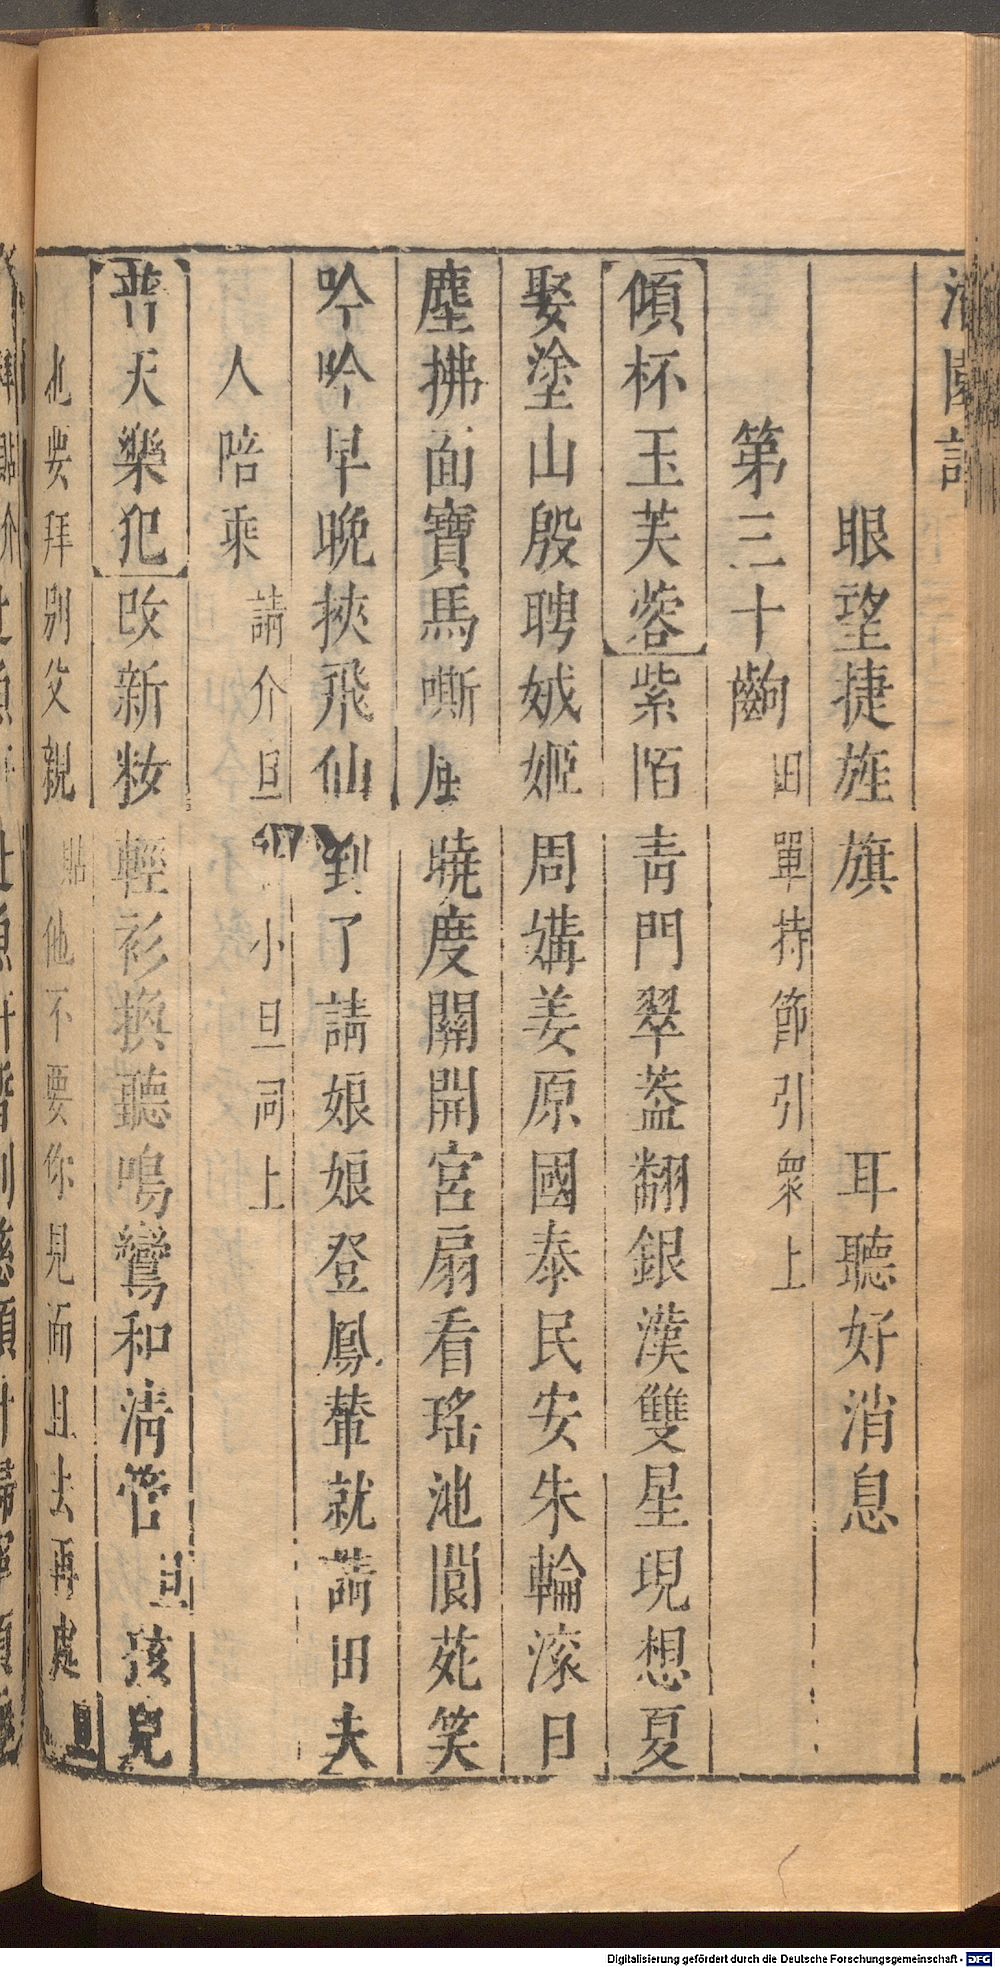 眼望捷旌旗　耳聽好消息
第三十齣 田單持節引衆上
【傾杯玉芙蓉】紫陌青門翠蓋翻銀漢雙星現想夏
娶塗山殷聘娀姬周媾姜原國泰民安朱輪滚日
塵拂面寶馬嘶風曉度關開宮扇看瑤池閬苑笑
吟吟早晚挾飛仙 到了請娘娘登鳳輦就請田夫
人陪乘 請介旦小旦同上
【普天樂犯】改新妝輕衫換聽鳴鸞和清管 旦 孩兒
也要拜別父親 貼 他不要你見面且去再處 旦
Digitalisierung gefördert durch die Deutsche Forschungsgemeinschaft - DFG